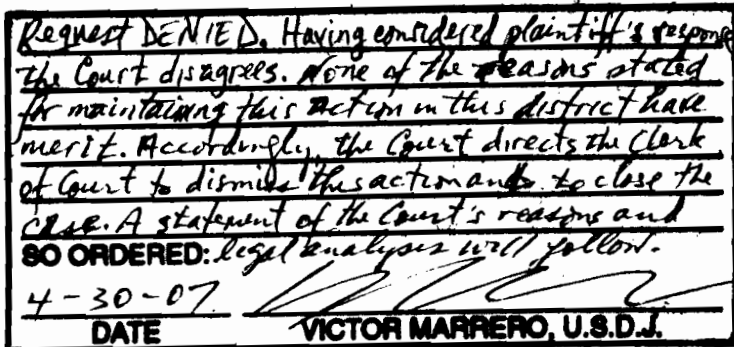 Request DENIED. Having considered plaintiff's response
the Court disagrees. None of the reasons stated
for maintaining this action in this district have
merit. Accordingly, the Court directs the Clerk
of Court to dismiss this action and to close the
case. A statement of the Court's reasons and
SO ORDERED: legal analysis will follow.
4-30-07
DATE VICTOR MARRERO, U.S.D.J.